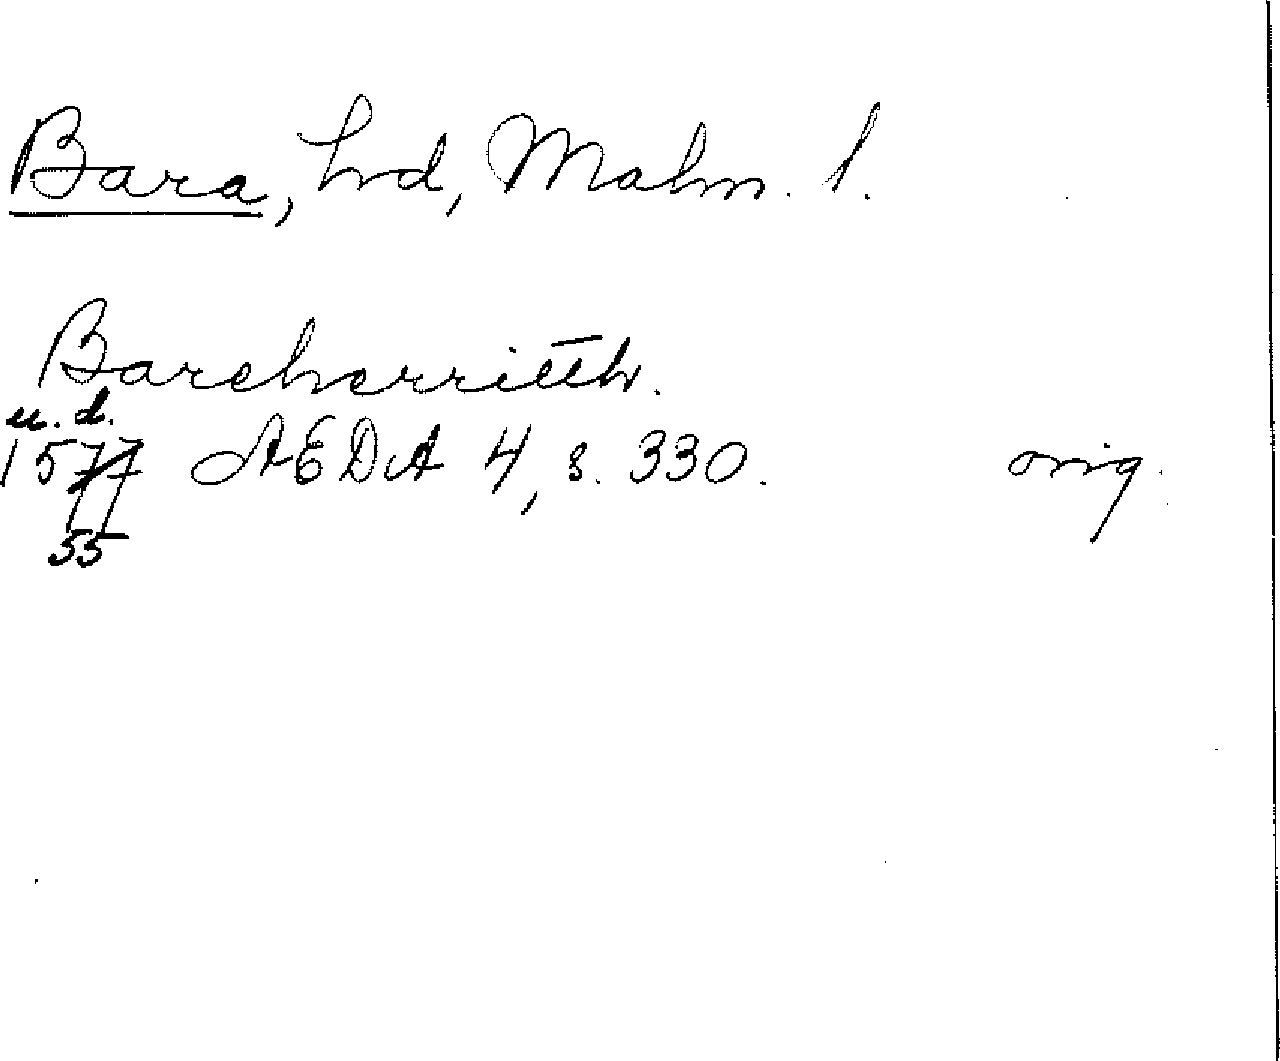 Bara, hrd, Malm. l.
Bareherritth.
u. d.
1577 AEDA 4, s. 330. orig.
55